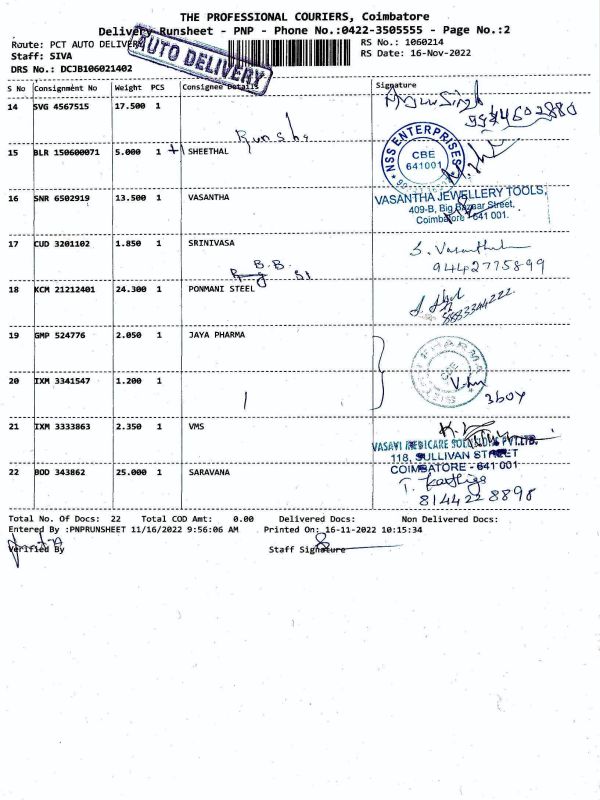 THE PROFESSIONAL COURIERS, Coimbatore
Delivery Runsheet - PNP - Phone No.:0422-3505555 - Page No.:2
Route: PCT AUTO DELIVERY
RS No.: 1060214
Staff: SIVA
RS Date: 16-Nov-2022
DRS No.: DCJB106021402
AUTO DELIVERY
S No Consignment No Weight PCS Consignee Details Signature
14 SVG 4567515 17.500 1
15 BLR 150600071 5.000 1 +1 SHEETHAL
NSS ENTERPRISES
CBE
641001
16 SNR 6502919 13.500 1 VASANTHA
VASANTHA JEWELLERY TOOLS,
409-B, Big Bazaar Street,
Coimbatore - 641 001.
17 CUD 3201102 1.850 1 SRINIVASA
S. Vasantha
9442775899
B.B.
18 KCM 21212401 24.300 1 PONMANI STEEL
19 GMP 524776 2.050 1 JAYA PHARMA
20 IXM 3341547 1.200 1
21 IXM 3333863 2.350 1 VMS
VASAVI MEDICARE SOLUTIONS PVT.LTD.
118, SULLIVAN STREET
COIMBATORE - 641 001
22 BOD 343862 25.000 1 SARAVANA
8144228898
Total No. Of Docs: 22 Total COD Amt: 0.00 Delivered Docs: Non Delivered Docs:
Entered By :PNPRUNSHEET 11/16/2022 9:56:06 AM Printed On: 16-11-2022 10:15:34
Verified By Staff Signature